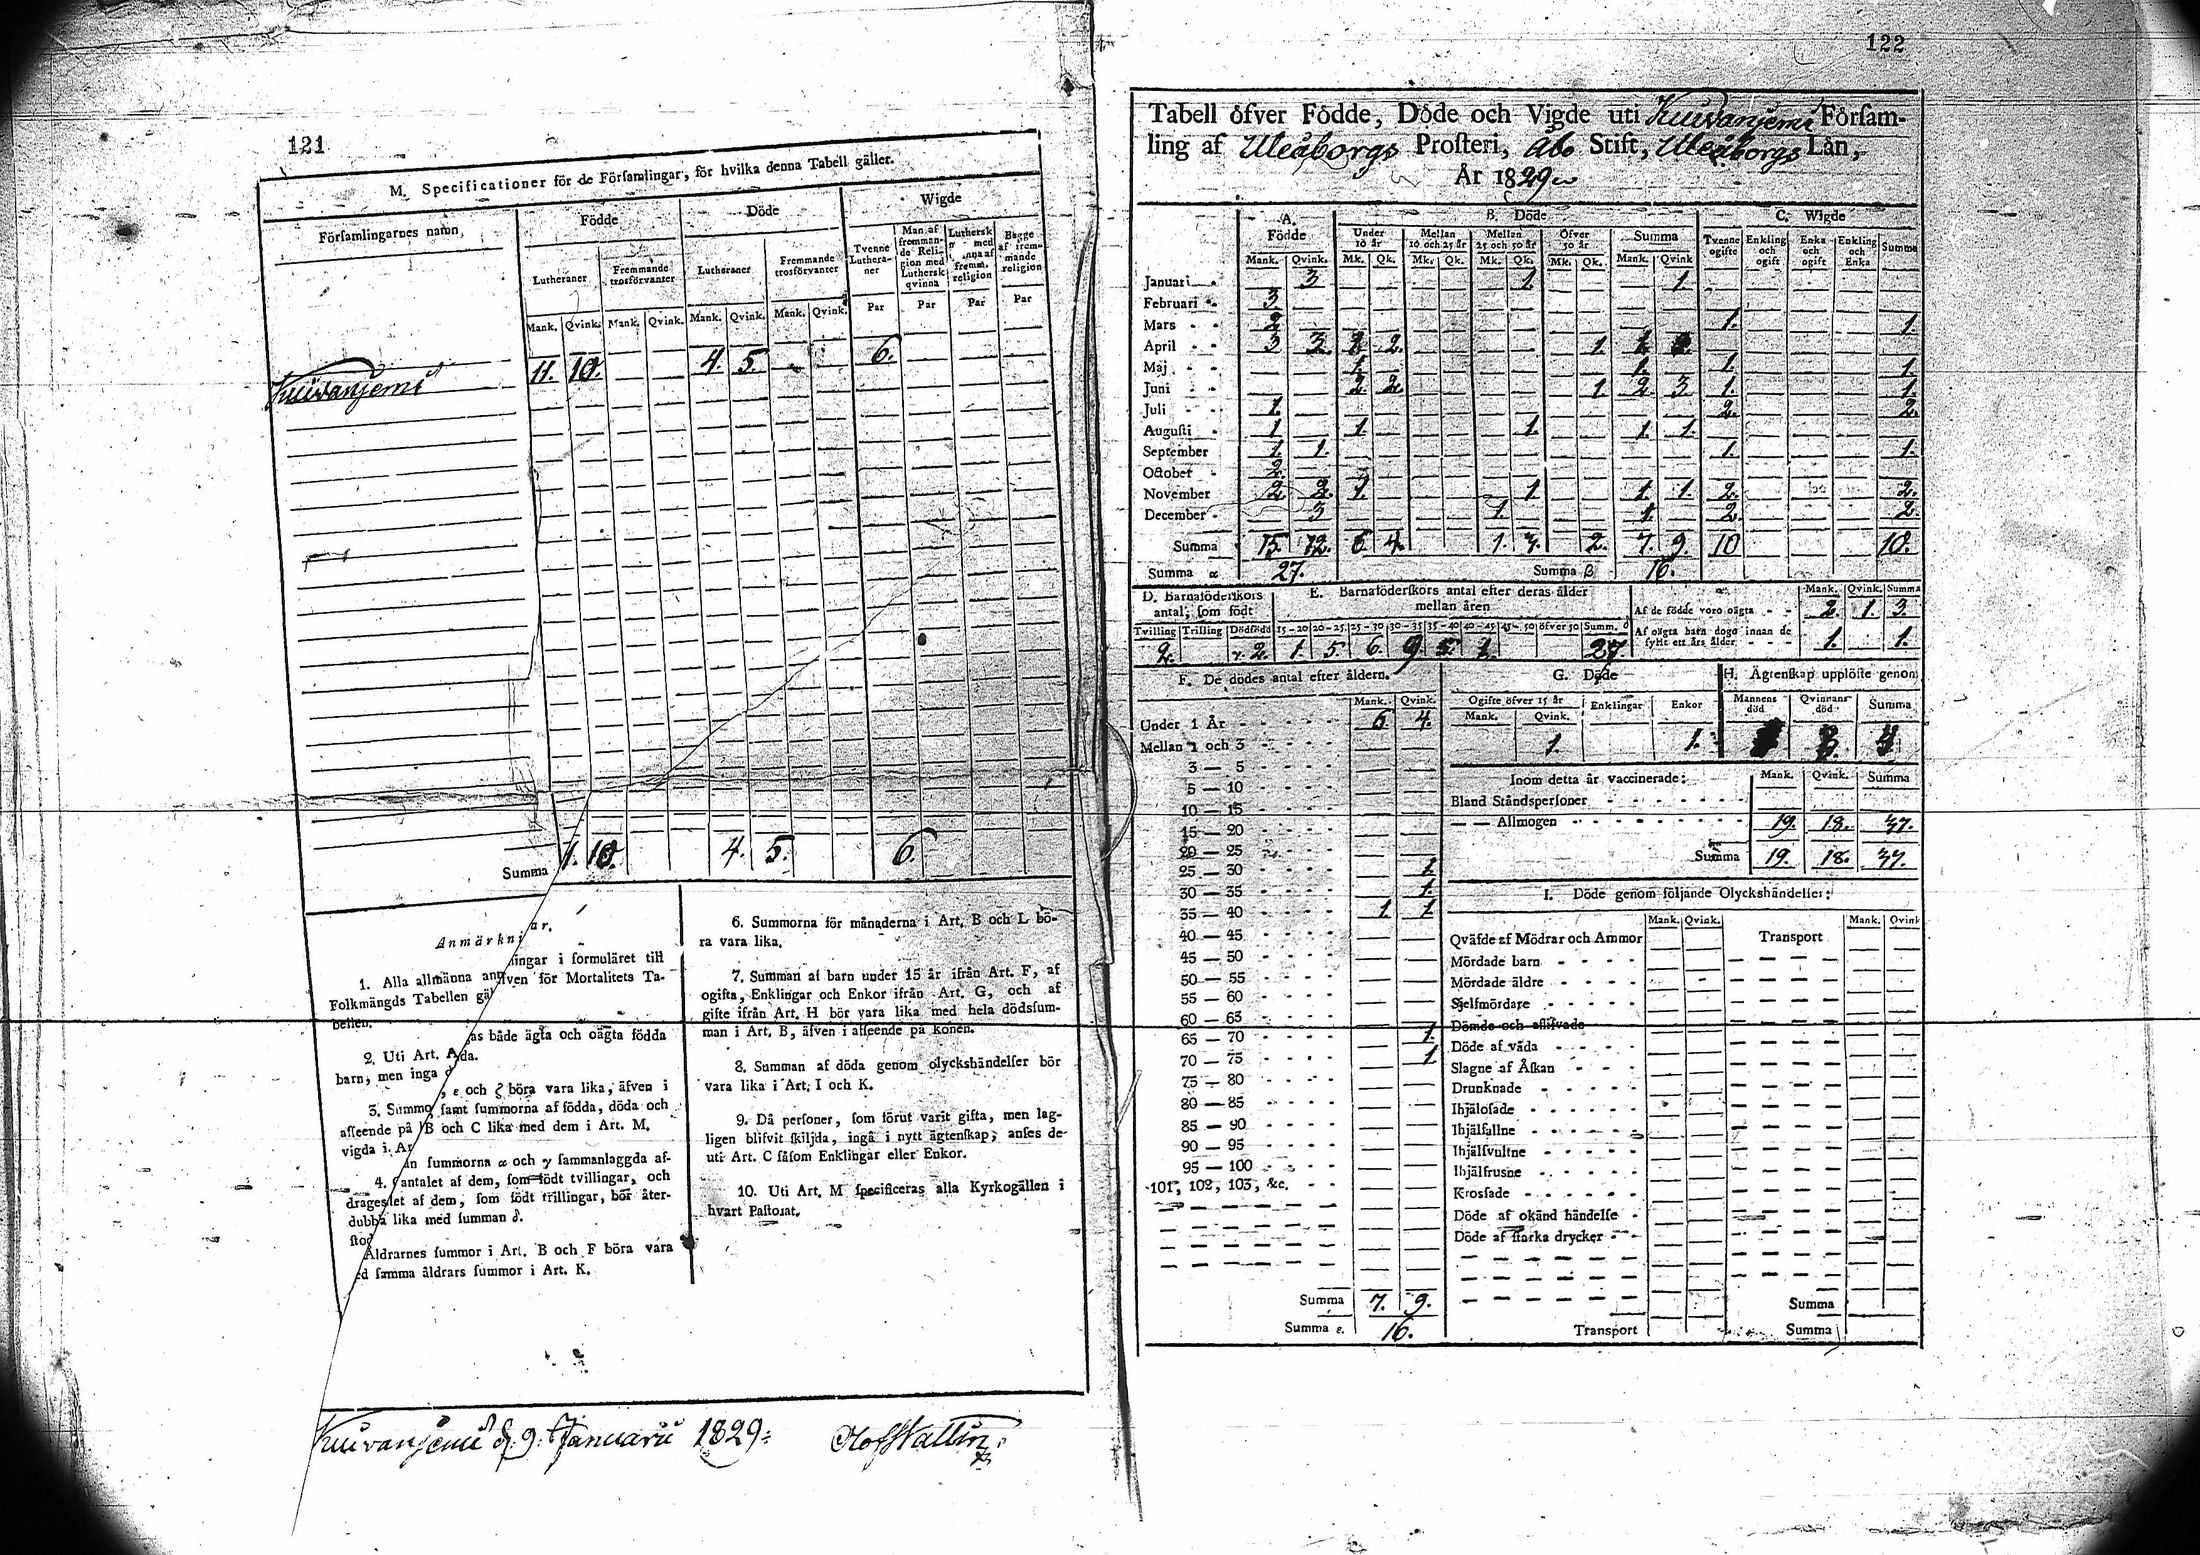 121
M. Specificationer för de Församlingar, för hvilka denna Tabell gäller.
Församlingarnes namn,
Födde
Döde
Wigde
Lutheraner
Fremmande trosförvanter
Lutheraner
Fremmande trosförvanter
Tvenne Lutheraner
Man af fremmande Religion med Luthersk qvinna
Luthersk med af fremm. religion
Bägge af fremmande religion
Mank. Qvink. Mank. Qvink. Mank. Qvink. Mank. Qvink. Par Par Par Par
Kuivaniemi 11. 10. 4. 5. 6.
Summa 10. 4. 5. 6.
Anmärkni ar.
1. Alla allmänna an ningar i formuläret till
Folkmängds Tabellen gä ven för Mortalitets Ta-
bellen.
2. Uti Art. A as både ägta och oägta födda
barn, men inga da.
3. Summo , ε och ζ böra vara lika, äfven i
afseende på samt summorna af födda, döda och
vigda i Ar B och C lika med dem i Art. M.
4. an summorna α och γ sammanlaggda af-
drages antalet af dem, som födt tvillingar, och
dubba let af dem, som födt trillingar, bör åter-
stod lika med summan δ.
Åldrarnes summor i Art. B och F böra vara
ed samma åldrars summor i Art. K.
6. Summorna för månaderna i Art. B och L bö-
ra vara lika.
7. Summan af barn under 15 år ifrån Art. F, af
ogifta, Enklingar och Enkor ifrån Art. G, och af
gifte ifrån Art. H bör vara lika med hela dödssum-
man i Art. B, äfven i afseende på könen.
8. Summan af döda genom olyckshändelser bör
vara lika i Art. I och K.
9. Då personer, som förut varit gifta, men lag-
ligen blifvit skiljda, ingå i nytt ägtenskap, anses de
uti Art. C såsom Enklingar eller Enkor.
10. Uti Art. M specificeras alla Kyrkogällen i
hvart Pastorat.
Kuivaniemi d. 9. Januarii 1829. Olof Wallin
122
Tabell öfver Födde, Döde och Vigde uti Kuivaniemi Försam-
ling af Uleåborgs Prosteri, Åbo Stift, Uleåborgs Län,
År 1829
A. Födde
B. Döde
C. Wigde
Under 10 år
Mellan 10 och 25 år
Mellan 25 och 50 år
Öfver 50 år
Summa
Tvenne ogifte
Enkling och ogift
Enka och ogift
Enkling och Enka
Summa
Mank. Qvink. Mk. Qk. Mk. Qk. Mk. Qk. Mk. Qk. Mank. Qvink
Januari 3 1. 1.
Februari 3.
Mars 2 1. 1.
April 3 3. 2. 1. 1.
Maj 1. 1. 1. 1.
Juni 2. 2. 1 2. 3. 1. 1.
Juli 1. 2. 2.
Augusti 1 1. 1. 1. 1.
September 1. 1. 1. 1.
October 2.
November 2. 2. 1. 1. 1. 1. 2. 2.
December 3 1. 1. 2. 2.
Summa 15. 12. 6. 4. 1. 3. 2. 7. 9. 10 10.
Summa α 27. Summa β 16.
D. Barnaföderskors antal, som födt
Tvilling Trilling Dödfödd
2. γ. 2.
E. Barnaföderskors antal efter deras ålder mellan åren
15-20 20-25 25-30 30-35 35-40 40-45 45-50 öfver 50 Summ. δ
1. 5. 6. 9. 5. 1. 27
Mank. Qvink. Summa
Af de födde voro oägta 2. 1. 3.
Af oägta barn dogo innan de fyllt ett års ålder 1. 1.
F. De dödes antal efter åldern.
Mank. Qvink.
Under 1 År 6 4.
Mellan 1 och 3
3 — 5
5 — 10
10 — 15
15 — 20
20 — 25
25 — 30 1.
30 — 35 1.
35 — 40 1 1.
40 — 45
45 — 50
50 — 55
55 — 60
60 — 65
65 — 70 1.
70 — 75 1
75 — 80
80 — 85
85 — 90
90 — 95
95 — 100
101, 102, 103, &c.
Summa 7. 9.
Summa ε. 16.
G. Döde
Ogifte öfver 15 år
Enklingar
Enkor
Mank. Qvink.
1. 1.
H. Ägtenskap upplöste genom
Mannens död
Qvinnans död
Summa
Inom detta år vaccinerade: Mank. Qvink. Summa
Bland Ståndspersoner
— — Allmogen 19. 18. 37.
Summa 19. 18. 37.
I. Döde genom följande Olyckshändelser:
Mank. Qvink. Mank. Qvink
Qväfde af Mödrar och Ammor Transport
Mördade barn
Mördade äldre
Sjelfmördare
Dömde och aflifvade
Döde af våda
Slagne af Åskan
Drunknade
Ihjälosade
Ihjälfallne
Ihjälsvultne
Ihjälfrusne
Krossade
Döde af okänd händelse
Döde af starka drycker
Summa
Transport Summa